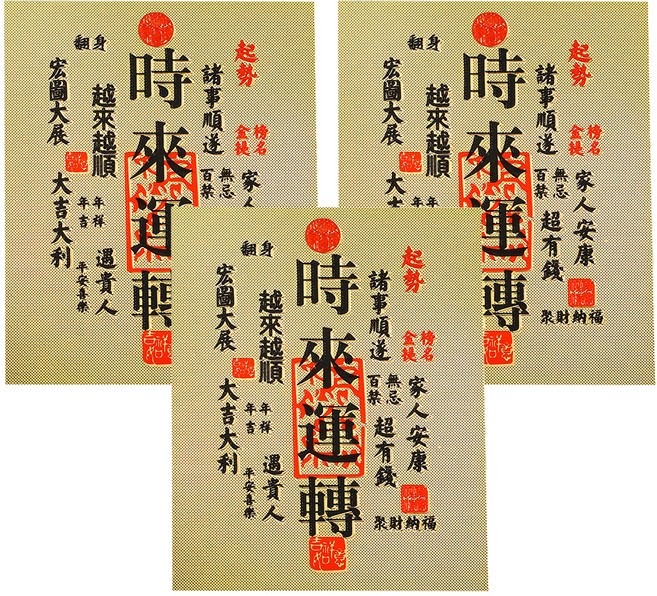 起勢
金榜
提名
家人
諸事順遂
百無
禁忌
時來運轉
翻身
越來越順
年年
吉祥
遇貴人
平安喜樂
宏圖大展
大吉大利
起勢
金榜
提名
家人安康
諸事順遂
百無
禁忌
超有錢
聚財納福
時來運轉
翻身
越來越順
年年
宏圖大展
大
起勢
金榜
提名
家人安康
諸事順遂
百無
禁忌
超有錢
聚財納福
時來運轉
翻身
越來越順
年年
吉祥
遇貴人
平安喜樂
宏圖大展
大吉大利